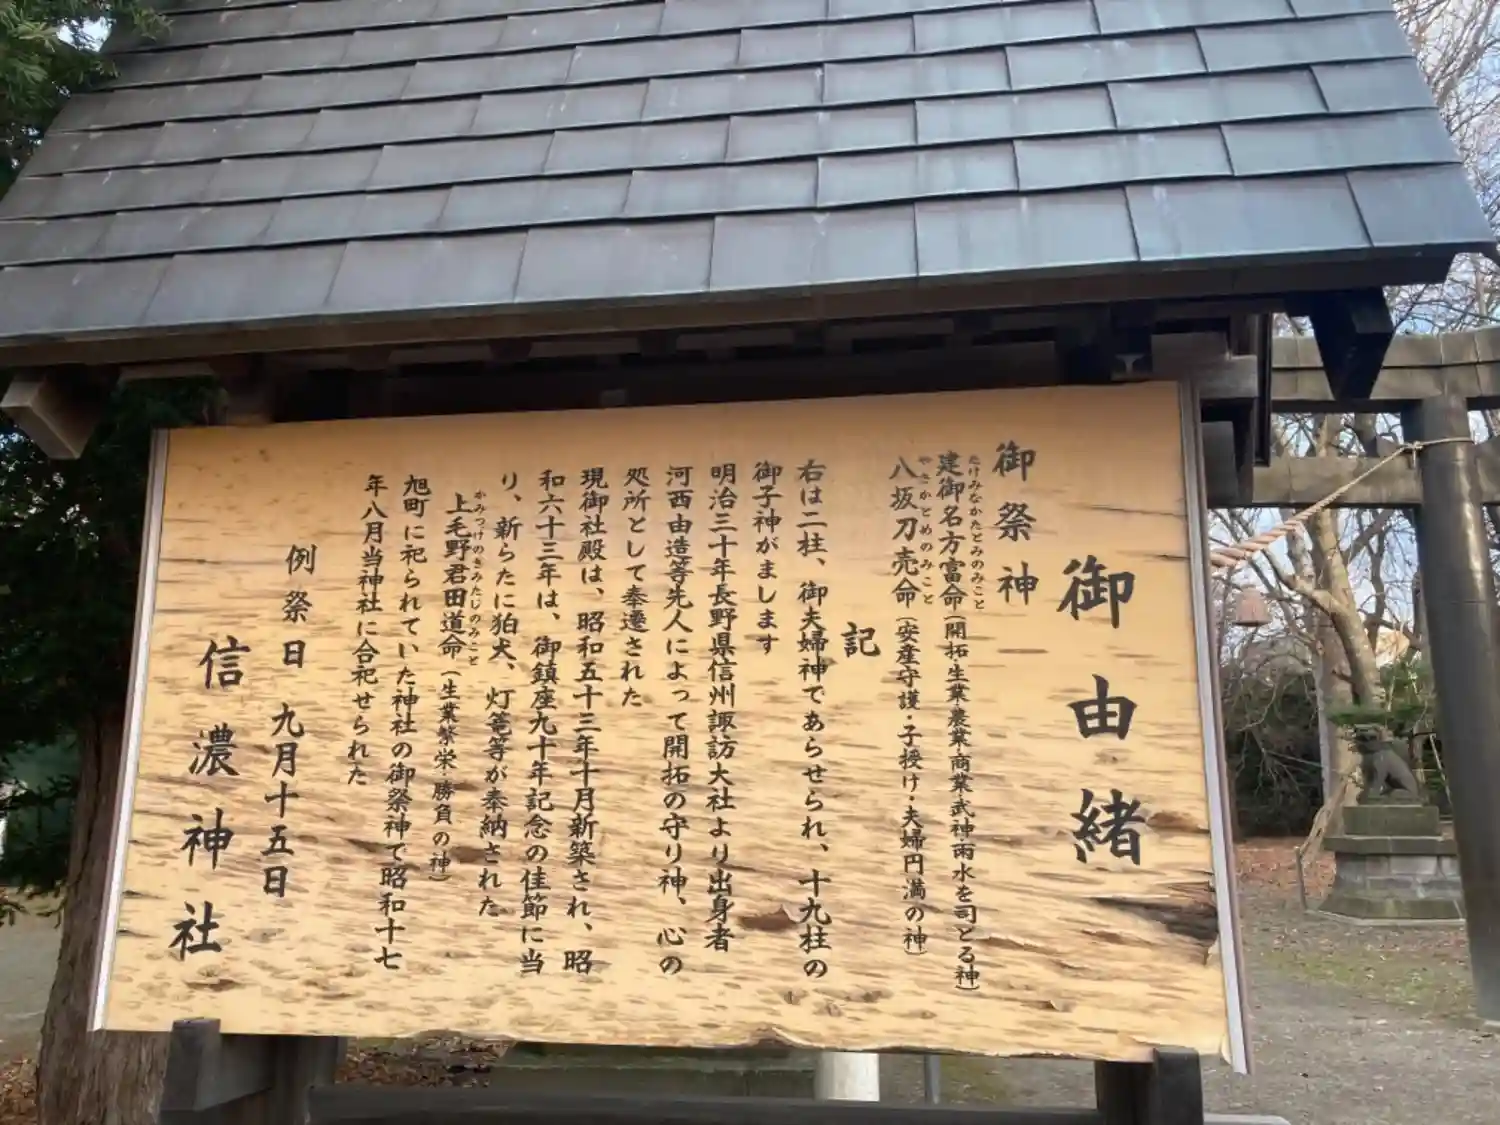 御由緒
御祭神
建御名方富命（開拓生業・農業商業・武神雨水を司どる神）
たけみなかたとみのみこと
八坂刀売命（安産守護・子授け・夫婦円満の神）
やさかとめのみこと
記
右は二柱、御夫婦神であらせられ、十九柱の
御子神がまします
明治三十年長野県信州諏訪大社より出身者
河西由造等先人によって開拓の守り神、心の
処所として奉遷された
現御社殿は、昭和五十三年十月新築され、昭
和六十三年は、御鎮座九十年記念の佳節に当
り、新らたに狛犬、灯篭等が奉納された
上毛野君田道命（生業繁栄・勝負の神）
かみつけのきみたじのみこと
旭町に祀られていた神社の御祭神で昭和十七
年八月当神社に合祀せられた
例祭日 九月十五日
信濃神社